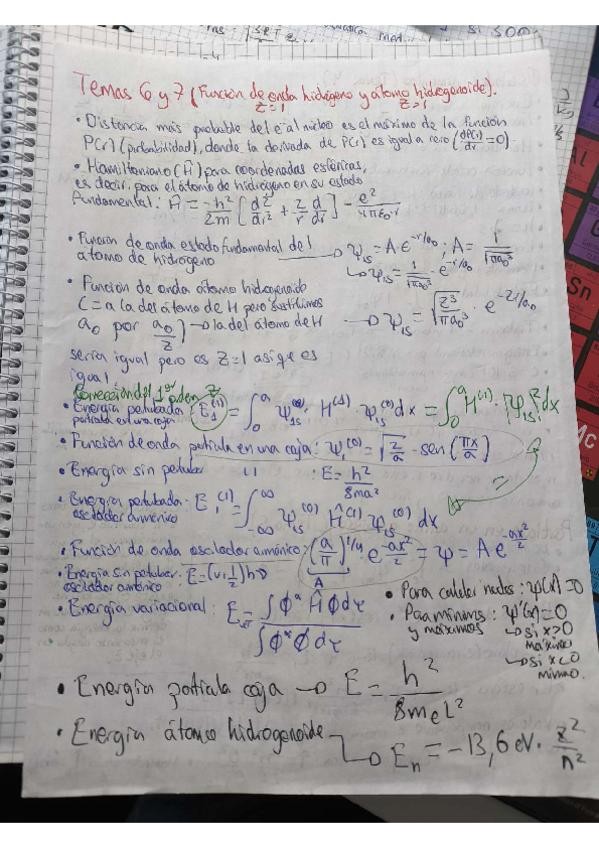 Temas 6 y 7 (Función de onda hidrógeno y átomo hidrogenoide).
Z=1 Z>1
• Distancia más probable del e⁻ al núcleo es el máximo de la función
P(r) (probabilidad), donde la derivada de P(r) es igual a cero (dP(r)/dr = 0)
• Hamiltoniano (Ĥ) para coordenadas esféricas
es decir, para el átomo de hidrógeno en su estado
fundamental: Ĥ = -ħ²/2m [d²/dr² + 2/r d/dr] - e²/4πε₀·r
• Función de onda estado fundamental del → Ψ₁s = A·e^(-r/a₀) ; A = 1/√(πa₀³)
átomo de hidrógeno ↳ Ψ₁s = 1/√(πa₀³) · e^(-r/a₀)
• Función de onda átomo hidrogenoide
(= a la del átomo de H pero sustituimos
a₀ por a₀/Z) → la del átomo de H → Ψ₁s = √(Z³/πa₀³) · e^(-Zr/a₀)
sería igual pero es Z=1 así que es
igual.
Corrección del 1er orden
• Energía pertubada E₁^(1) = ∫₀^a Ψ₁s^(0) · H^(1) · Ψ₁s^(0) dx = ∫₀^a H^(1) · |Ψ₁s|² dx
partícula en una caja
• Función de onda partícula en una caja: Ψ₁^(0) = √(2/a) · sen(πx/a)
• Energía sin pertubar : E = h²/8ma²
• Energía pertubada: E₁^(1) = ∫_-∞^∞ Ψ₁s^(0) Ĥ^(1) Ψ₁s^(0) dx
oscilador armónico
• Función de onda oscilador armónico: (a/π)^(1/4) · e^(-ax²/2) = Ψ = A e^(-ax²/2)
A
• Energía sin pertubar: E = (v+1/2)hν
oscilador armónico
• Energía variacional: E = ∫Φ* Ĥ Φ dτ / ∫Φ* Φ dτ
• Para calcular nodos: Ψ(x)=0
• Para mínimos: Ψ'(x)=0
y máximos ↳ si x>0
máximo
↳ si x<0
mínimo.
• Energía partícula caja → E = h²/8mₑL²
• Energía átomo hidrogenoide
↳ Eₙ = -13,6 eV · Z²/n²